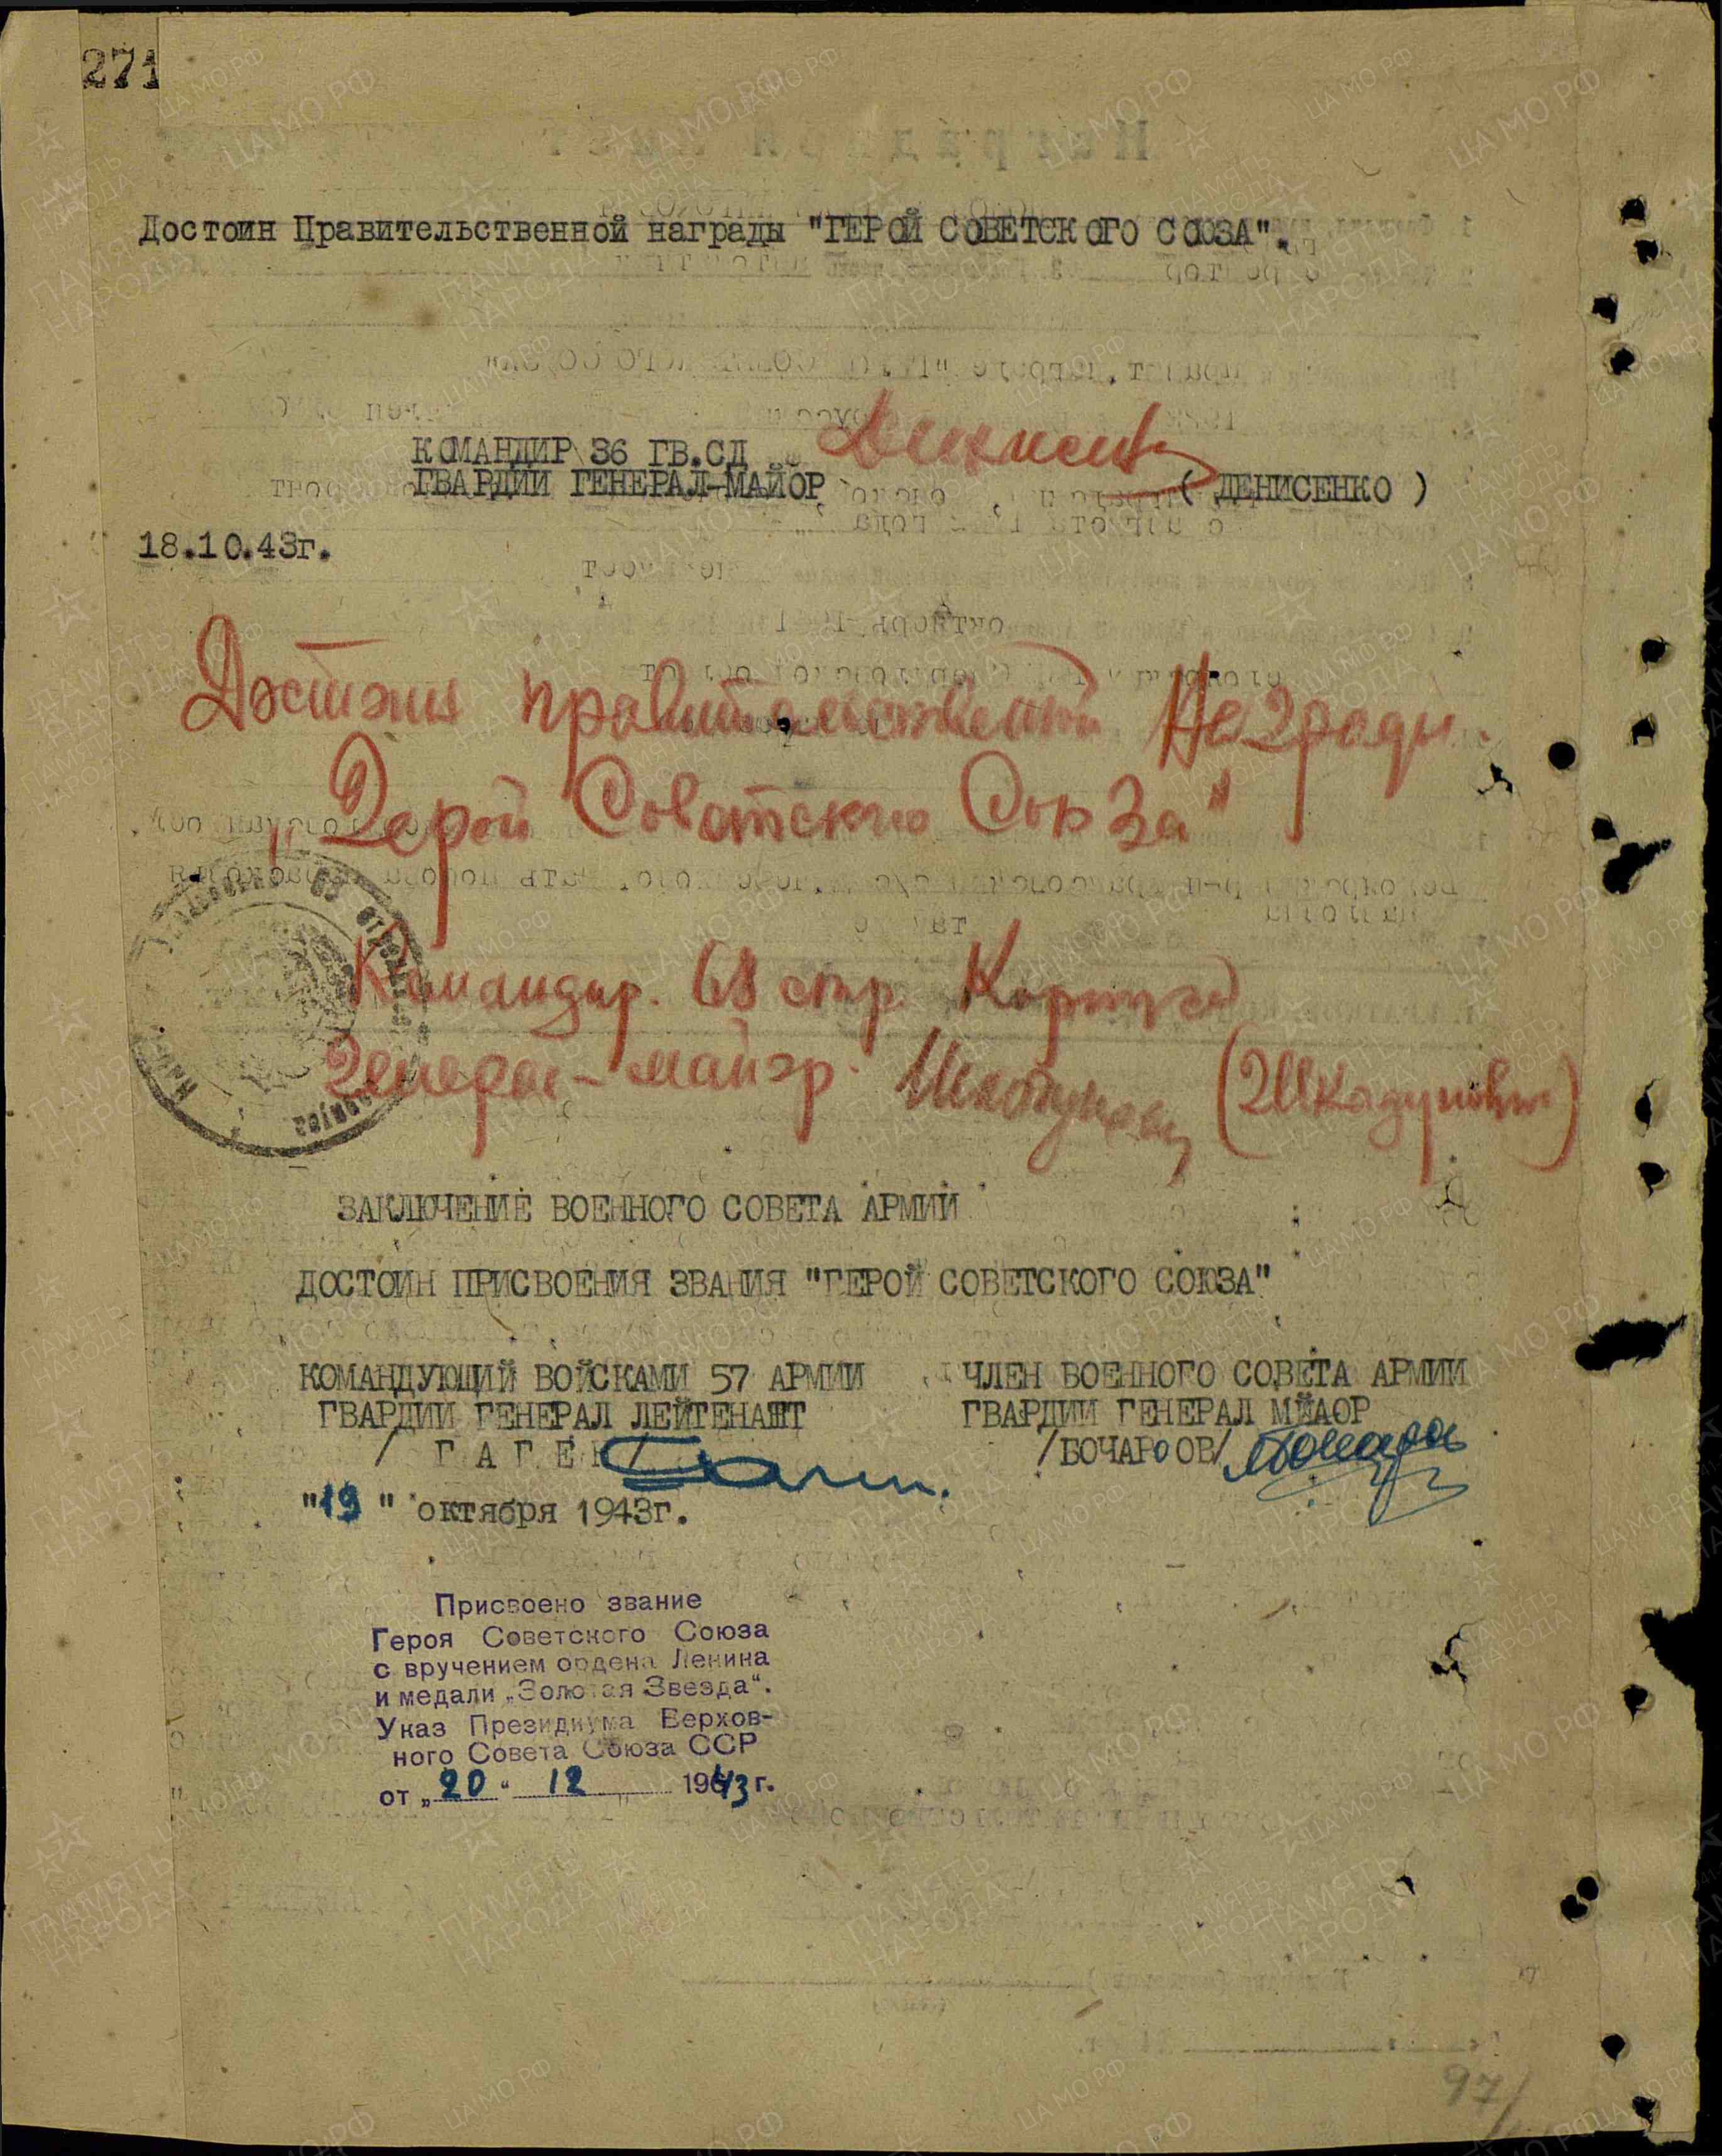 271
Достоин Правительственной награды "ГЕРОЙ СОВЕТСКОГО СОЮЗА".
КОМАНДИР 36 ГВ.СД
ГВАРДИИ ГЕНЕРАЛ-МАЙОР ( ДЕНИСЕНКО )
18.10.43г.
Достоин правительственной Награды
"Герой Советского Союза"
Командир. 68 стр. Корпуса
Генерал-майор. (Шкодунович)
ЗАКЛЮЧЕНИЕ ВОЕННОГО СОВЕТА АРМИИ
ДОСТОИН ПРИСВОЕНИЯ ЗВАНИЯ "ГЕРОЙ СОВЕТСКОГО СОЮЗА"
КОМАНДУЮЩИЙ ВОЙСКАМИ 57 АРМИИ ЧЛЕН ВОЕННОГО СОВЕТА АРМИИ
ГВАРДИИ ГЕНЕРАЛ ЛЕЙТЕНАНТ ГВАРДИИ ГЕНЕРАЛ МЙАОР
/ ГАГЕН / /БОЧАРООВ/
"19" октября 1943г.
Присвоено звание
Героя Советского Союза
с вручением ордена Ленина
и медали „Золотая Звезда".
Указ Президиума Верхов-
ного Совета Союза ССР
от „20" 12 1943 г.
97